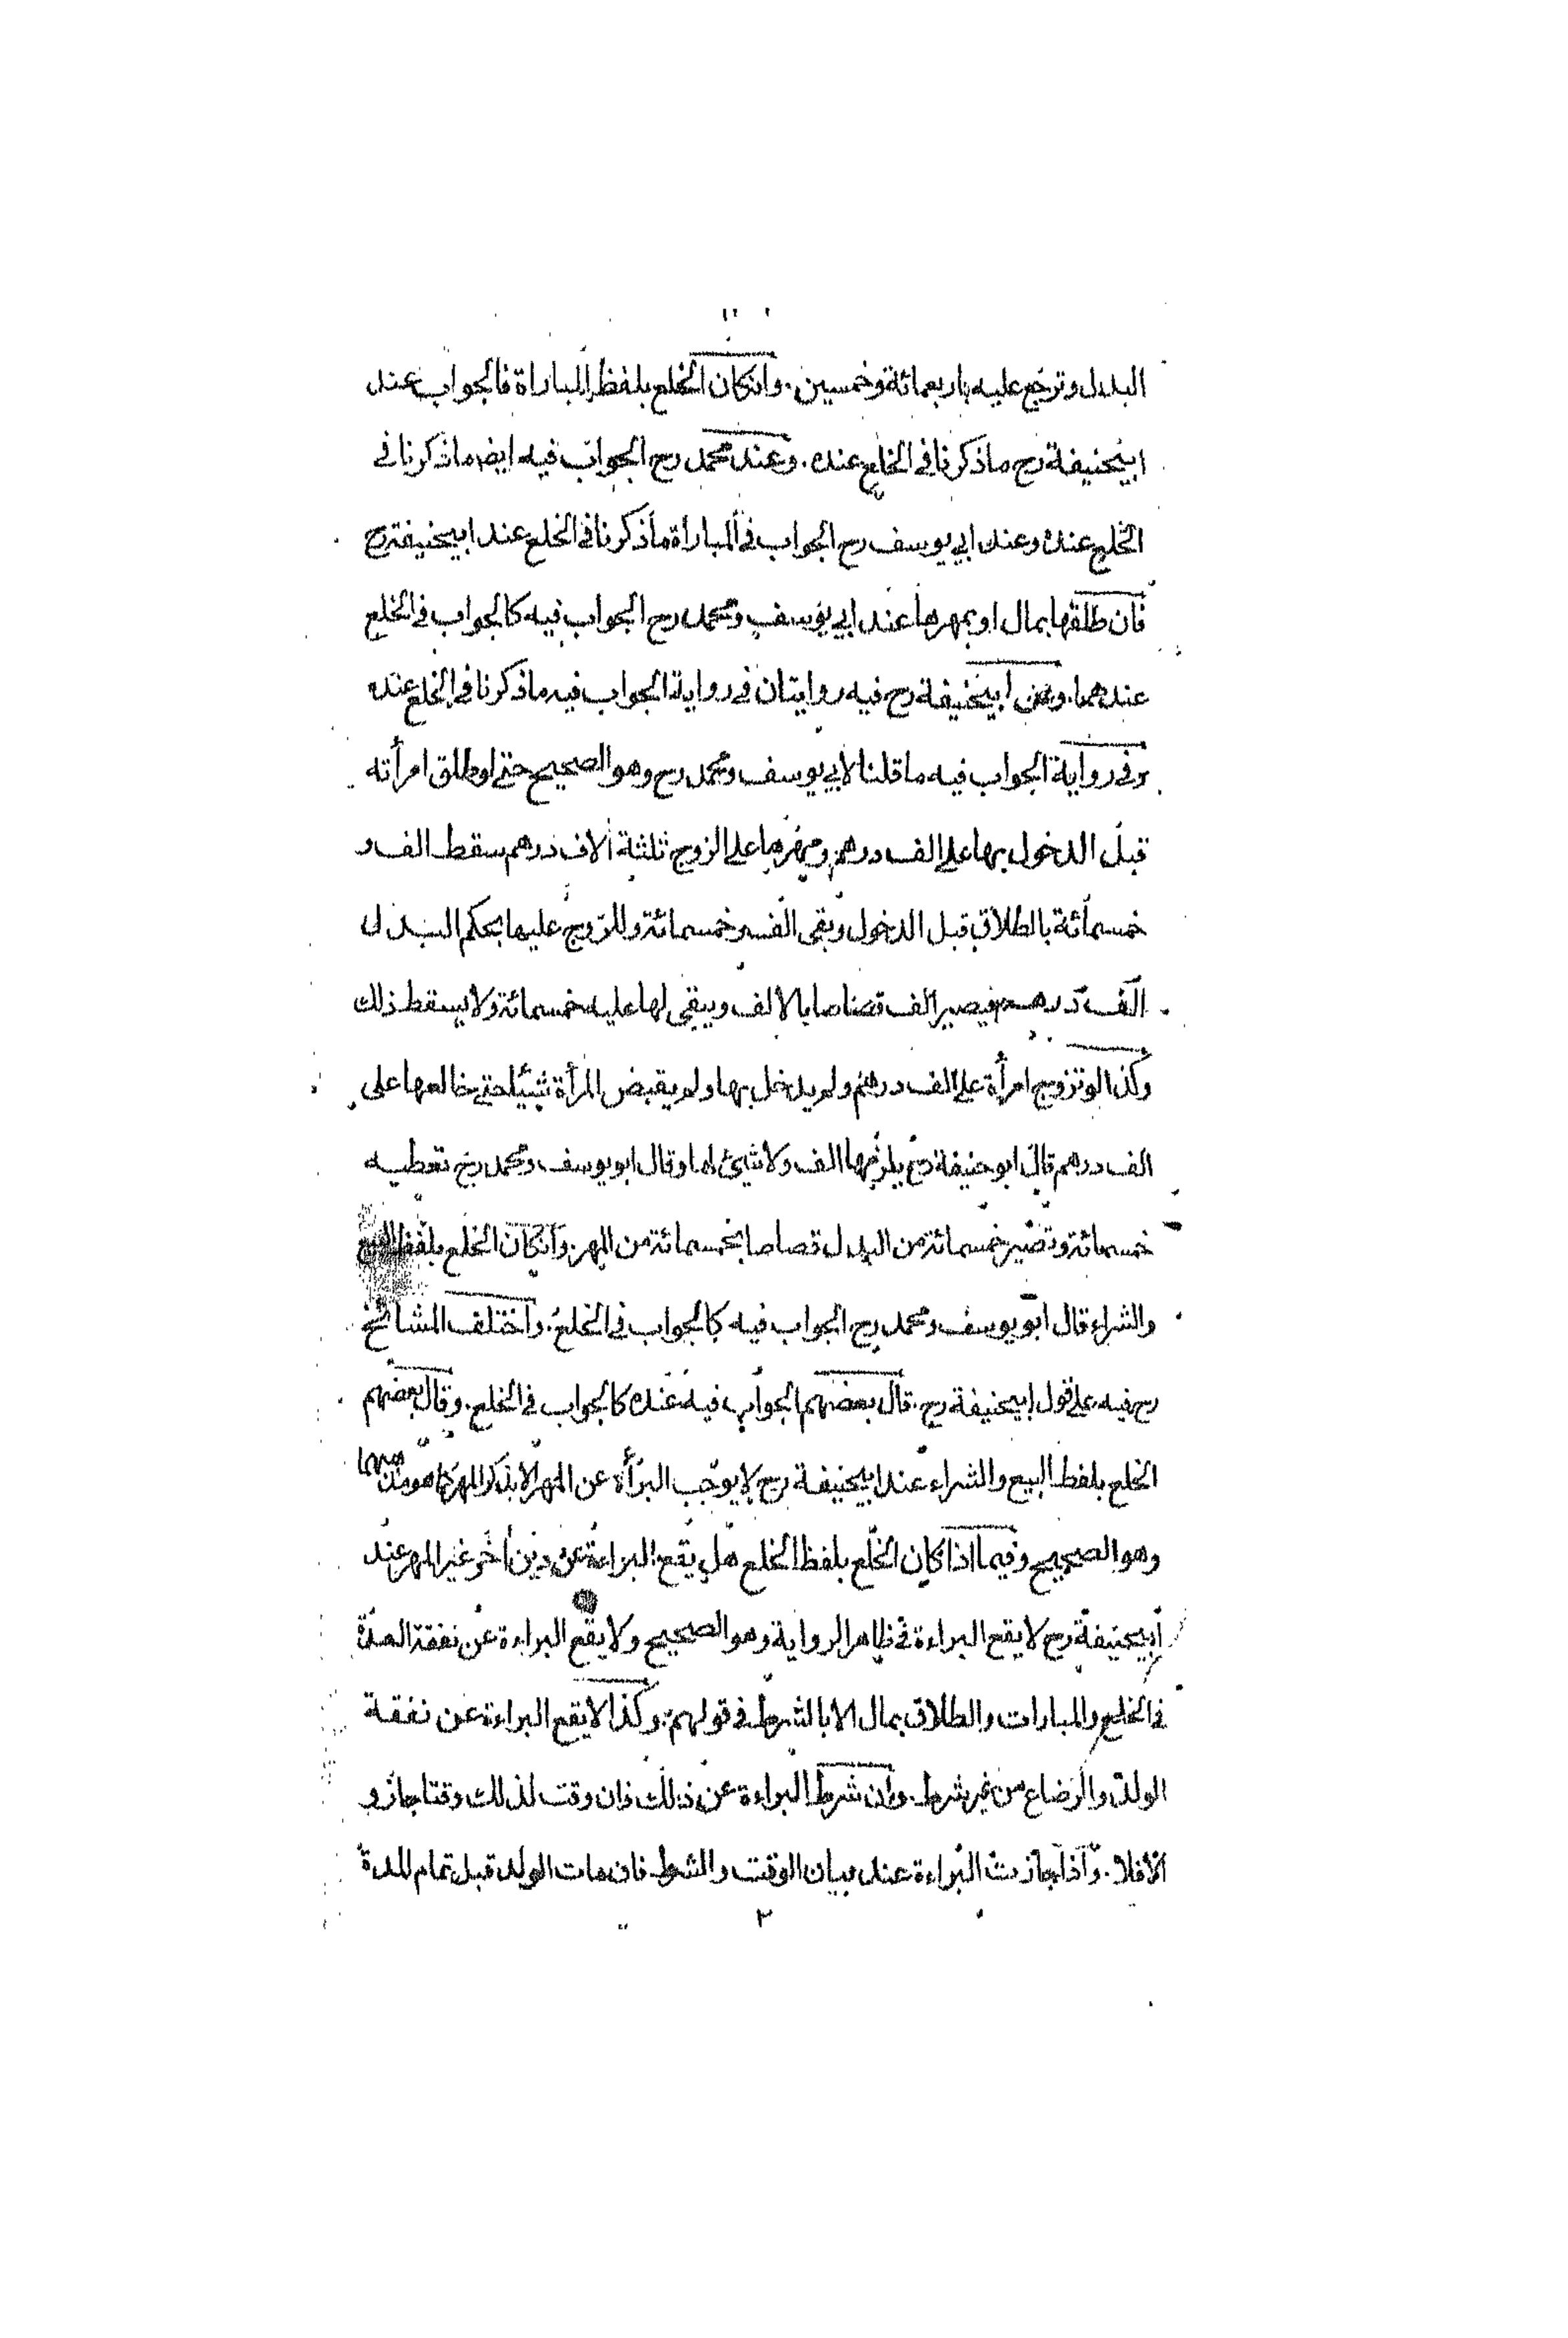 البدل وترجع عليه باربعمائة وخمسين. وانكان الخلع بلفظ المباراة فالجواب عند
ابيحنيفة رح ماذكرنا في الخلع عنده. وعند محمد رح الجواب فيه ايضا ماذكرنا في
الخلع عنده وعند ابي يوسف رح الجواب في المباراة ماذكرنا في الخلع عند ابيحنيفة رح
فان طلقها بمال او بمهرها عند ابي يوسف ومحمد رح الجواب فيه كالجواب في الخلع
عندهما. وعن ابيحنيفة رح فيه روايتان في رواية الجواب فيه ماذكرنا في الخلع عنده
وفي رواية الجواب فيه ماقلنا لابي يوسف ومحمد رح وهو الصحيح حتى لوطلق امرأته
قبل الدخول بها على الف درهم ومهرها على الزوج ثلثة الاف درهم سقط الف و
خمسمائة بالطلاق قبل الدخول وبقى الف وخمسمائة وللزوج عليها بحكم البدل
الف درهم فيصير الف قصاصا بالالف ويبقى لها عليه خمسمائة ولا يسقط ذلك
وكذا لو تزوج امرأة على الف درهم ولم يدخل بها ولم يقبض المرأة شيئا حتى خالعها على
الف درهم قال ابو حنيفة رح يلزمها الف ولا شيئ لها وقال ابو يوسف ومحمد رح تعطيه
خمسمائة وتصير خمسمائة من البدل قصاصا بخمسمائة من المهر. وانكان الخلع بلفظ البيع
والشراء قال ابو يوسف ومحمد رح الجواب فيه كالجواب في الخلع. واختلف المشائخ
رح فيه على قول ابيحنيفة رح. قال بعضهم الجواب فيه عنده كالجواب في الخلع. وقال بعضهم
الخلع بلفظ البيع والشراء عند ابيحنيفة رح لا يوجب البرأة عن المهر الا بذكر المهر كما هو
وهو الصحيح وفيما اذا كان الخلع بلفظ الخلع هل يقع البراءة عن دين اخر غير المهر عند
ابيحنيفة رح لا يقع البراءة في ظاهر الرواية وهو الصحيح ولا يقع البراءة عن نفقة العدة
في الخلع والمبارات والطلاق بمال الا بالشرط في قولهم. وكذا لا يقع البراءة عن نفقة
الولد والرضاع من غير شرط. وان شرط البراءة عن ذلك فان وقت لذلك وقتا جاز و
الا فلا. واذا جازت البراءة عند بيان الوقت والشرط فان مات الولد قبل تمام المدة
٢